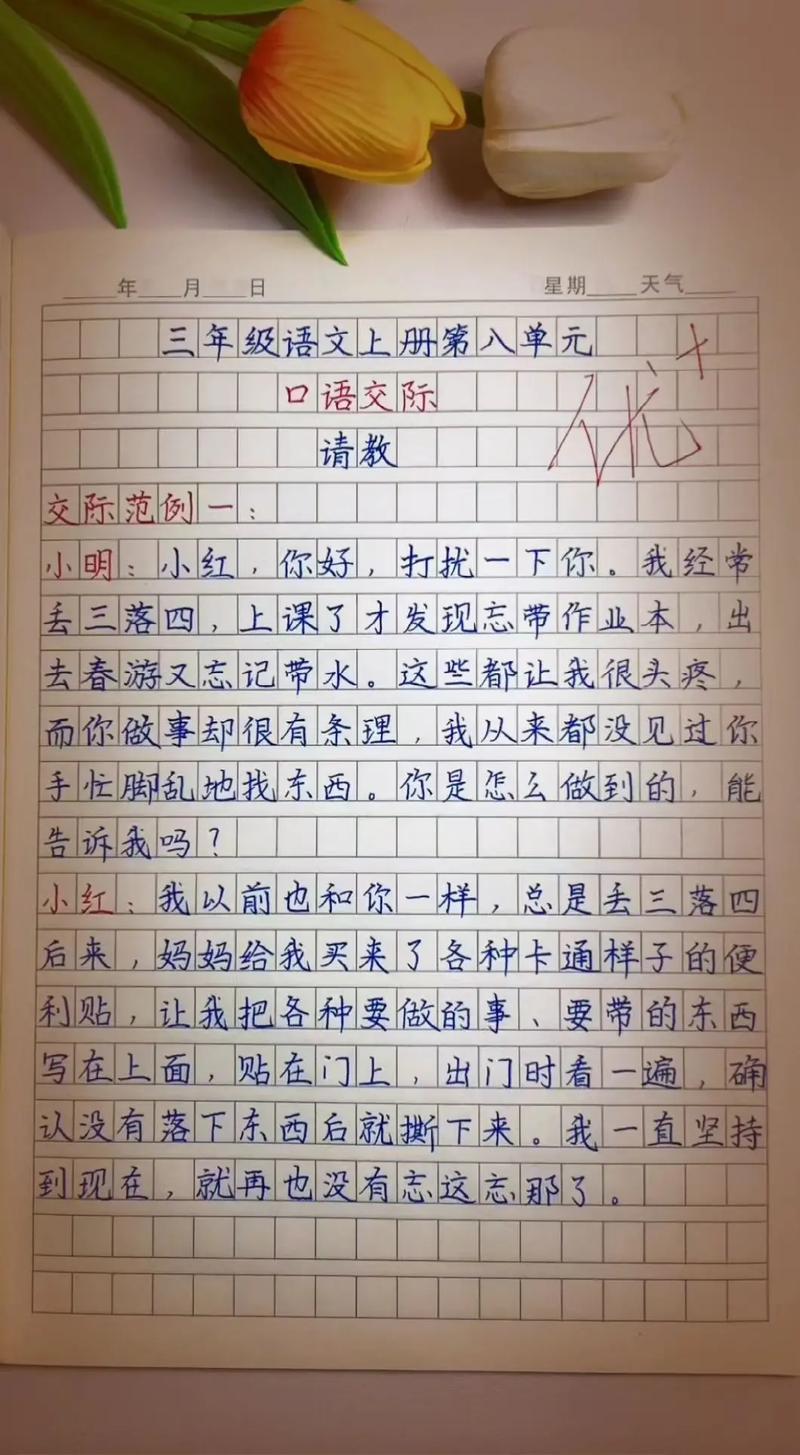 ____年____月____日 星期____天气____
三年级语文上册第八单元
优+
口语交际
请教
交际范例一：
小明：小红，你好，打扰一下你。我经常
丢三落四，上课了才发现忘带作业本，出
去春游又忘记带水。这些都让我很头疼，
而你做事却很有条理，我从来都没见过你
手忙脚乱地找东西。你是怎么做到的，能
告诉我吗？
小红：我以前也和你一样，总是丢三落四
后来，妈妈给我买来了各种卡通样子的便
利贴，让我把各种要做的事、要带的东西
写在上面，贴在门上，出门时看一遍，确
认没有落下东西后就撕下来。我一直坚持
到现在，就再也没有忘这忘那了。